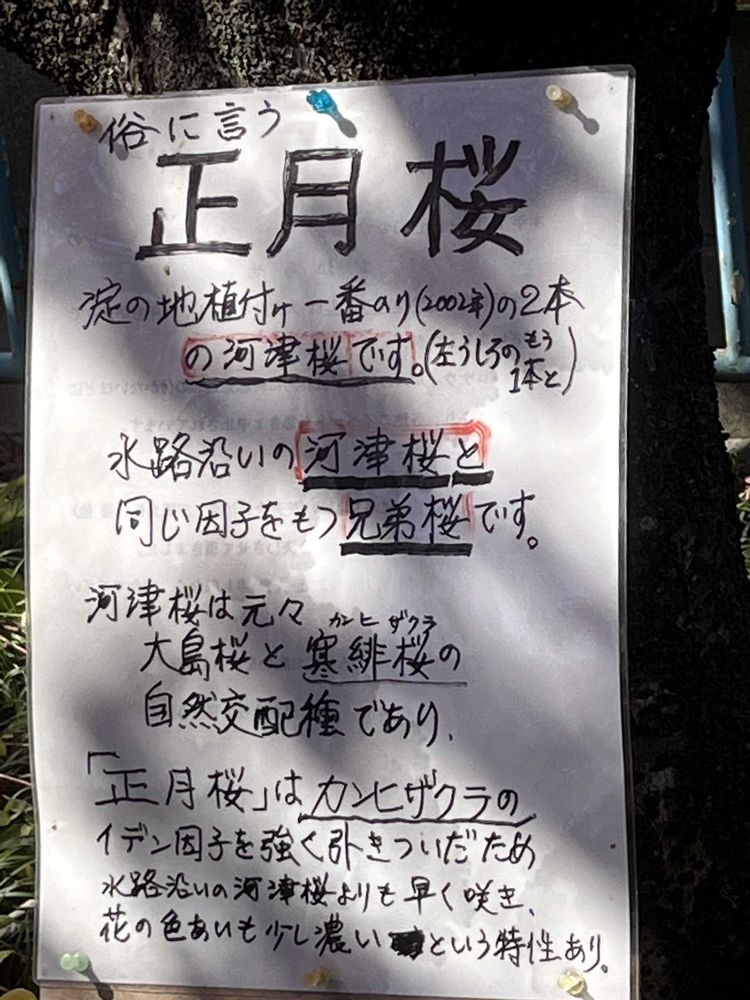 俗に言う
正月桜
淀の地植付け一番のり(2002年)の2本
の河津桜です。(左うしろのもう
1本と)
水路沿いの河津桜と
同じ因子をもつ兄弟桜です。
河津桜は元々
カンヒザクラ
大島桜と寒緋桜の
自然交配種であり、
「正月桜」はカンヒザクラの
イデン因子を強く引きついだため
水路沿いの河津桜よりも早く咲き、
花の色あいも少し濃いという特性あり。